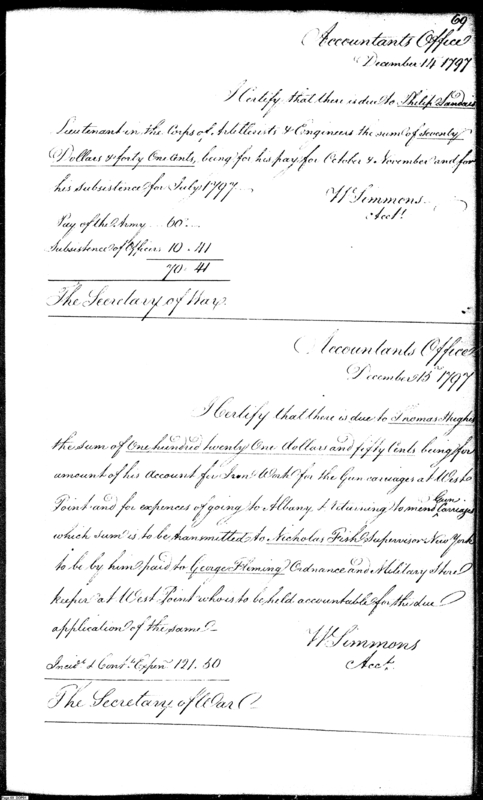 69
Accountants Office
December 14 1797
I Certify that there is due to Philip Landais
Lieutenant in the Corps of Artillerists & Engineers the sum of seventy
Dollars & forty One Cents, being for his pay for October & November and for
his subsistence for July 1797
Wm Simmons
Acct.
Pay of the Army 60.
Subsistence of Officers 10.41
70.41
The Secretary of War.
Accountants Office
December 15 1797
I Certify that there is due to Thomas Hughes
the sum of One hundred twenty One dollars and fifty Cents being for
amount of his account for Iron Work for the Gun carriages at West
Point and for expences of going to Albany & returning to mend Gun Carriages
which sum is to be transmitted to Nicholas Fish Supervisor New York
to be by him paid to George Fleming Ordnance and Military Store
keeper at West Point who is to be held accountable for the due
application of the same
Wm Simmons
Acct.
Incidt. & Contt. Expen 121.50
The Secretary of War